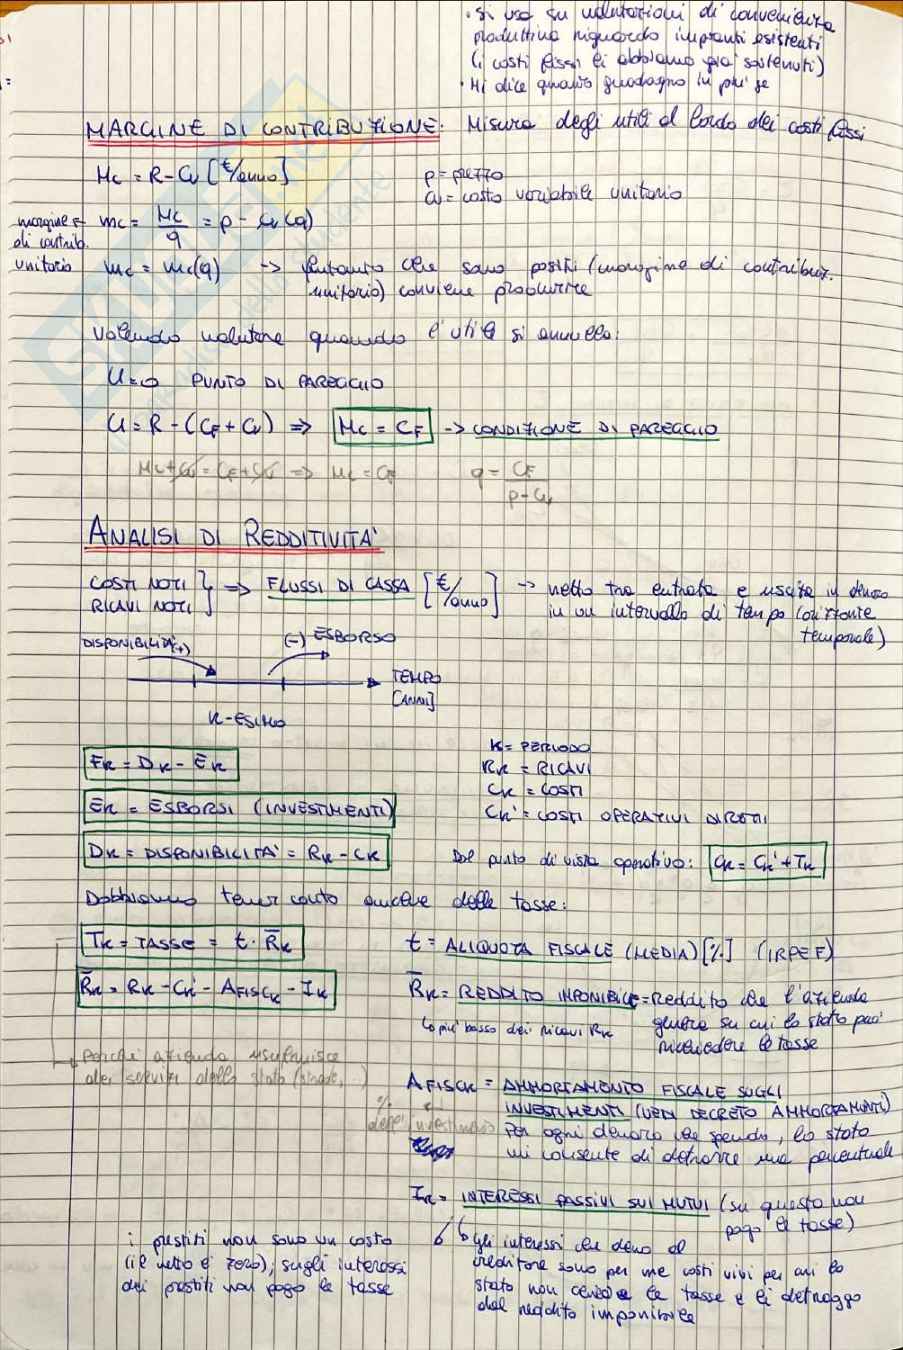 • Si usa su valutazioni di convenienza
produttiva riguardo impianti esistenti
(i costi fissi li abbiamo già sostenuti)
• Mi dice quanto guadagno in più se
MARGINE DI CONTRIBUZIONE: Misura degli utili al lordo dei costi fissi
Mc = R - Cv [€/anno]
p = prezzo
cv = costo variabile unitario
margine di contrib. unitario
mc = Mc/q = p - cv(q)
mc = mc(q) -> fintanto che sono positivi (margine di contribuz.
unitario) conviene produrre
Volendo valutare quando l'utile si annulla:
U=0 PUNTO DI PAREGGIO
U = R - (CF + Cv) => Mc = CF -> CONDIZIONE DI PAREGGIO
Mc + Cv = CF + Cv => Mc = CF
q = CF/(p - cv)
ANALISI DI REDDITIVITA'
COSTI NOTI
RICAVI NOTI
} => FLUSSI DI CASSA [€/anno] -> netto tra entrate e uscite in denaro
in un intervallo di tempo (orizzonte
temporale)
DISPONIBILITÀ (+)
(-) ESBORSO
TEMPO
[ANNI]
K-ESIMO
FK = DK - EK
EK = ESBORSI (INVESTIMENTI)
DK = DISPONIBILITA' = RK - CK
K = PERIODO
RK = RICAVI
CK = COSTI
CK' = COSTI OPERATIVI DIRETTI
Dal punto di vista operativo: CK = CK' + TK
Dobbiamo tener conto anche delle tasse:
TK = TASSE = t · R̄K
t = ALIQUOTA FISCALE (MEDIA) [%] (IRPEF)
R̄K = RK - CK' - AFISCK - IK
R̄K = REDDITO IMPONIBILE = Reddito che l'azienda
genera su cui lo stato può
richiedere le tasse
più basso dei ricavi RK
perché azienda usufruisce
dei servizi dello stato (strade, ..)
AFISCK = AMMORTAMENTO FISCALE SUGLI
INVESTIMENTI (VEDI DECRETO AMMORTAMENTI)
% degli investimenti
Per ogni denaro che spendo, lo stato
mi consente di detrarre una percentuale
IK = INTERESSI PASSIVI SUI MUTUI (su questo non
pago le tasse)
i prestiti non sono un costo
(il netto è zero); sugli interessi
dei prestiti non pago le tasse
gli interessi che devo al
creditore sono per me costi vivi per cui lo
stato non le tasse e li detraggo
dal reddito imponibile